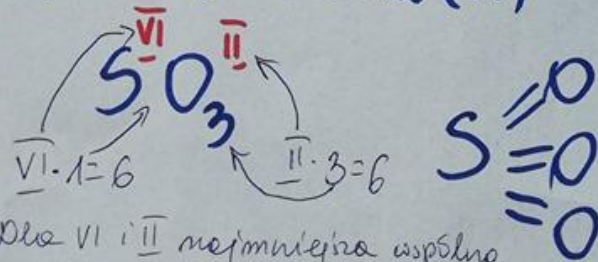 VI II
SO3
VI · 1 = 6
II · 3 = 6
S =O
=O
=O
Dla VI i II najmniejsza wspólna